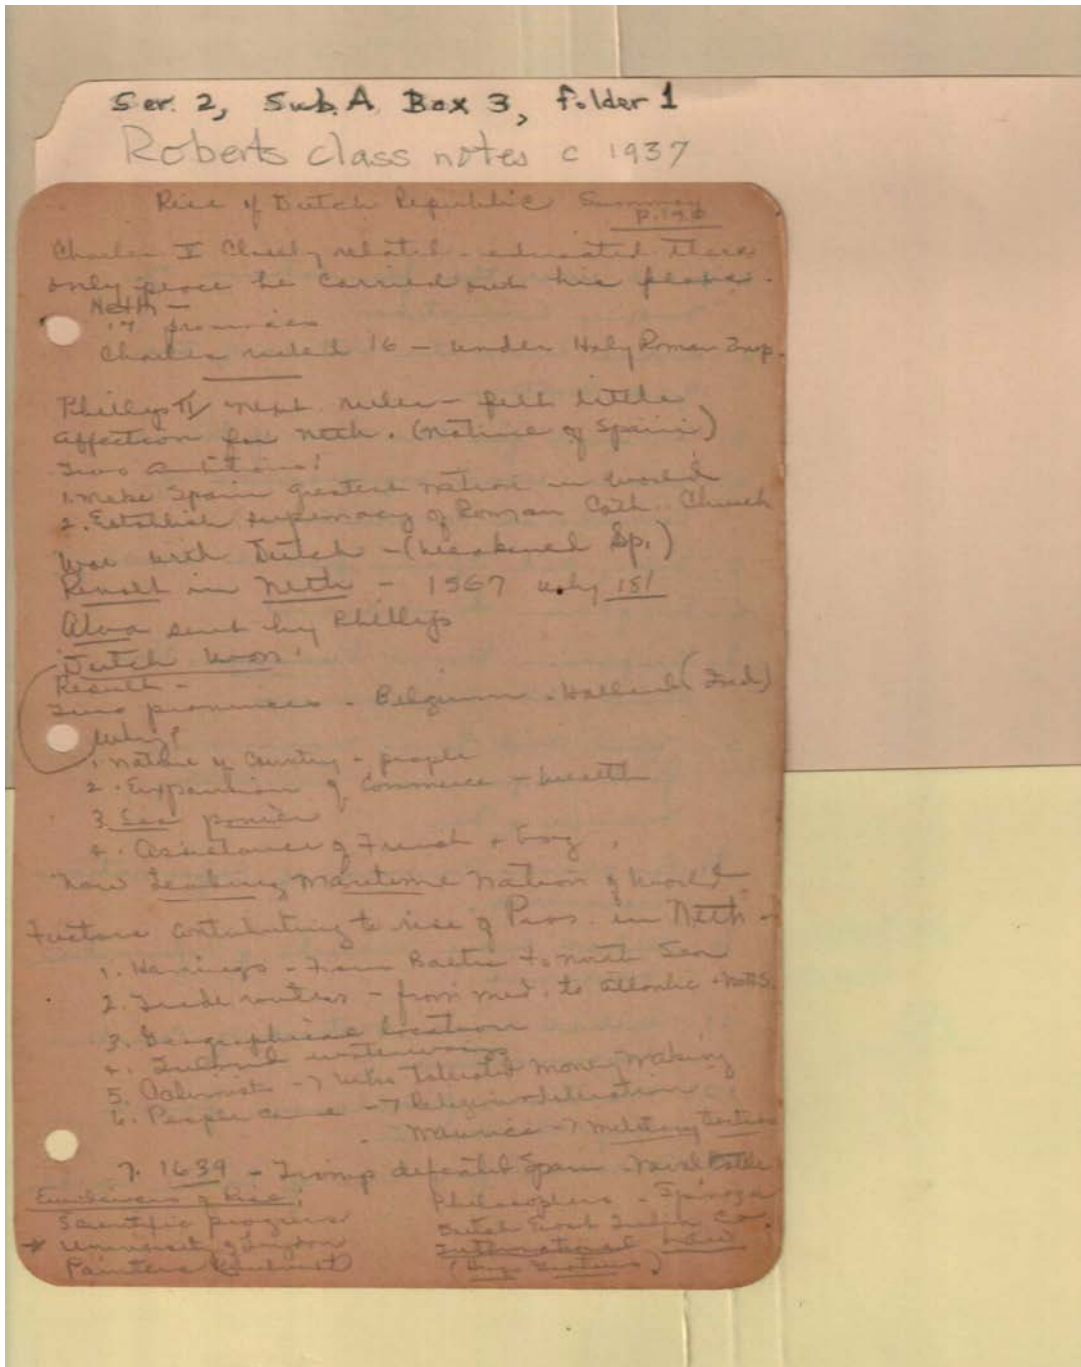 Ser. 2, Sub. A Box 3, folder 1
Roberts class notes c 1937
Rise of Dutch Republic Summary
p. 190
Charles I Closely related - educated there
only place he carried out his plans.
Neth -
17 provinces
Charles ruled 16 - under Holy Roman Emp.
Phillip II next ruler - felt little
affection for Neth. (Native of Spain)
Two ambitions:
1. Make Spain greatest nation in world
2. Establish supremacy of Roman Cath. Church
War with Dutch - (weakened Sp.)
Revolt in Neth - 1567 why 181
Alva sent by Phillip
Dutch won!
Result -
Two provinces - Belgium - Holland (Ind)
Why?
1. Nature of Country - people
2. Expansion of Commerce + wealth
3 Sea power
4. Assistance of French + Eng.
Now Leading Maritime Nation of World
Factors contributing to rise of Pros. in Neth -
1. Herrings - from Baltic to North Sea
2. Trade routes - from Med. to Atlantic + North S.
3. Geographical location
4. Inland waterways
5. Calvinists -> who tolerated money making
6. People came -> Religious toleration
Maurice -> military tactics
7. 1639 - Tromp defeated Spain - Naval battle
Evidences of Rise:
Scientific progress
* University of Leyden
Painters Rembrandt
Philosophers - Spinoza
Dutch East India Co.
International Law
(Hugo Grotius)